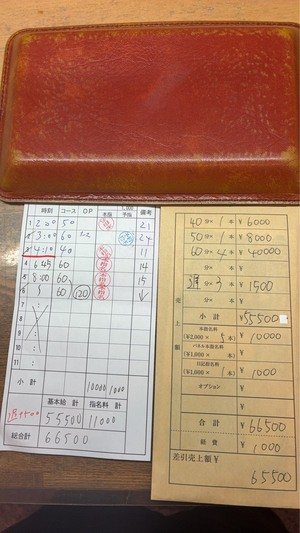 時刻 コース OP 本指 予指 備考
1 2:20 50 21
2 3:09 60 24
3 4:10 40 11
4 6:45 60 14
5 8:00 60 15
6 60 120 ↓
7 :
8 :
9 :
10 :
11 :
小計 10000 1000
基本給計 指名料計
55500 11000
総合計 66500
売上額
40分× 1本 ¥6000
50分× 1本 ¥8000
60分× 4本 ¥40000
分× 本 ¥
分× 3本 ¥1500
小計 ¥55500
本指名料
(¥2,000× 5本) ¥10000
パネル本指名料
(¥1,000× 本) ¥
(¥1,000× 本) ¥1000
オプション ¥
¥
合計 ¥66500
経費 ¥1000
差引売上額¥
65500